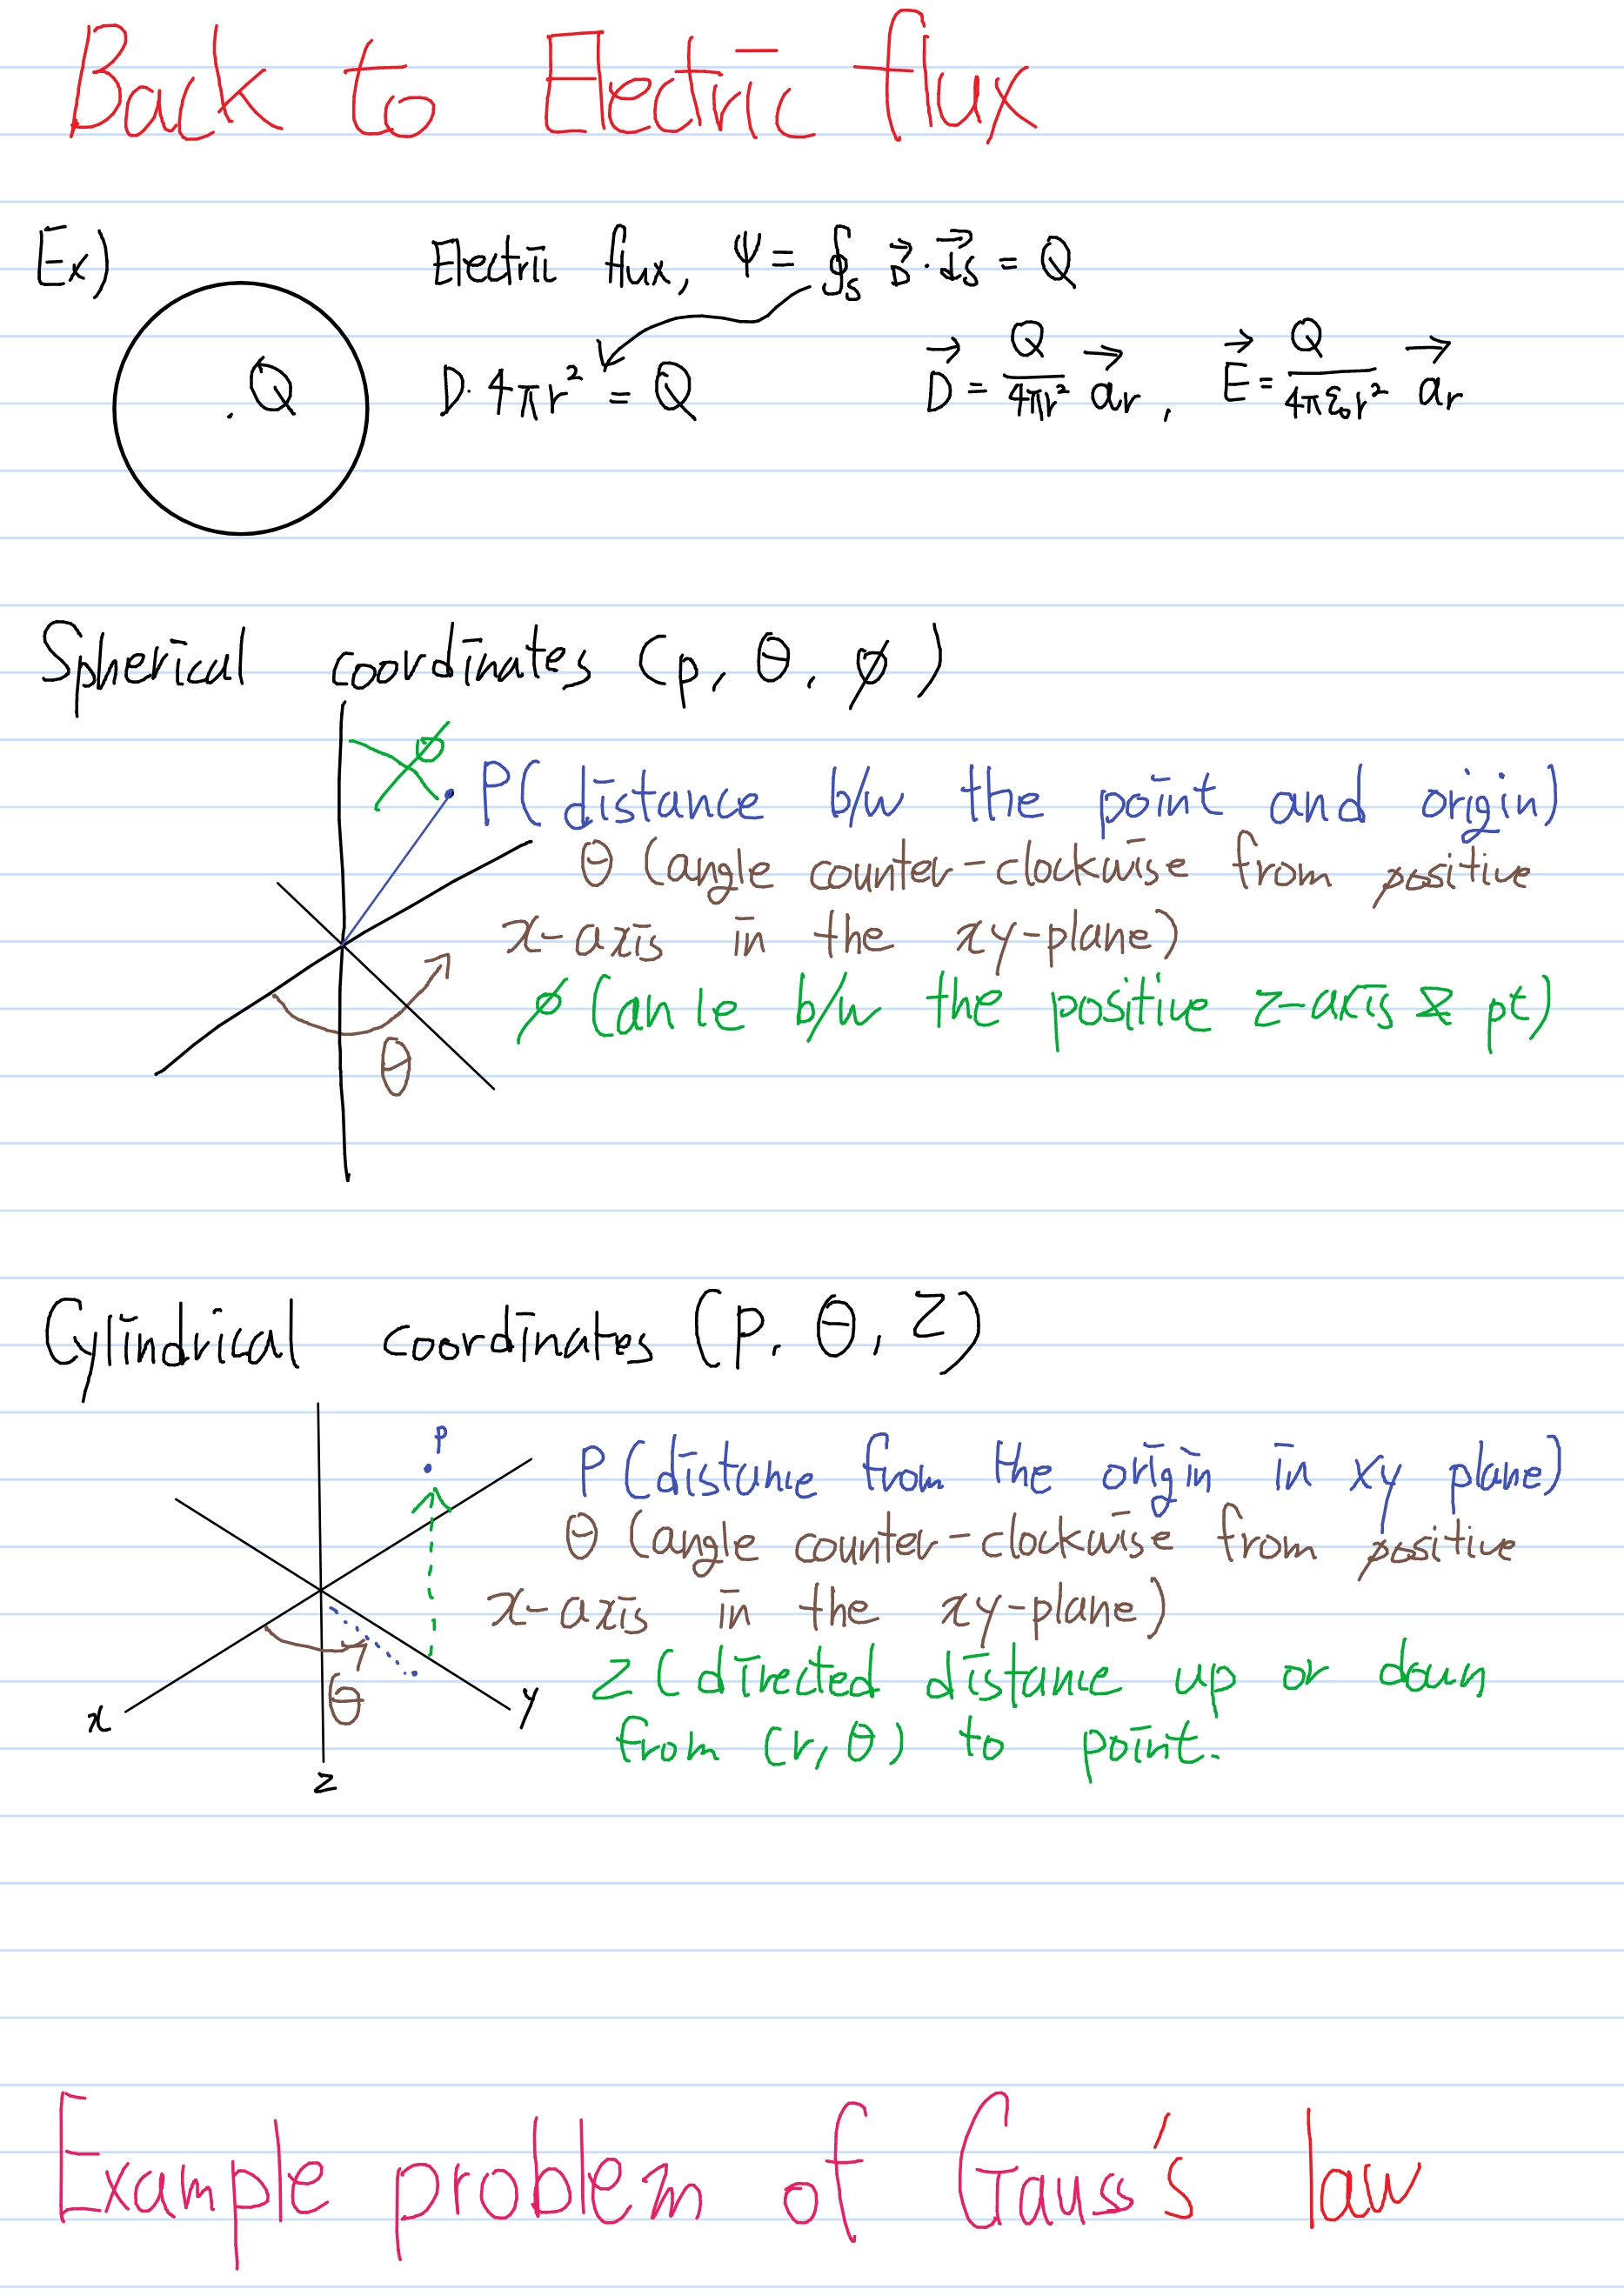 Back to Electric flux
Ex) Electric flux, Ψ = ∮s D⃗ · ds⃗ = Q
.Q D·4πr² = Q D⃗ = Q/4πr² a⃗r, E⃗ = Q/4πε₀r² a⃗r
Spherical coordinates (p, θ, ∅)
∅
P (distance b/w the point and origin)
θ (angle counter-clockwise from positive
x-axis in the xy-plane)
∅ (an le b/w the positive z-axis & pt)
θ
Cylindrical coordinates (p, θ, z)
P
P (distance from the origin in xy plane)
θ (angle counter-clockwise from positive
x-axis in the xy-plane)
z (directed distance up or down
from (r, θ) to point.
x θ y
z
Example problem of Gauss's law